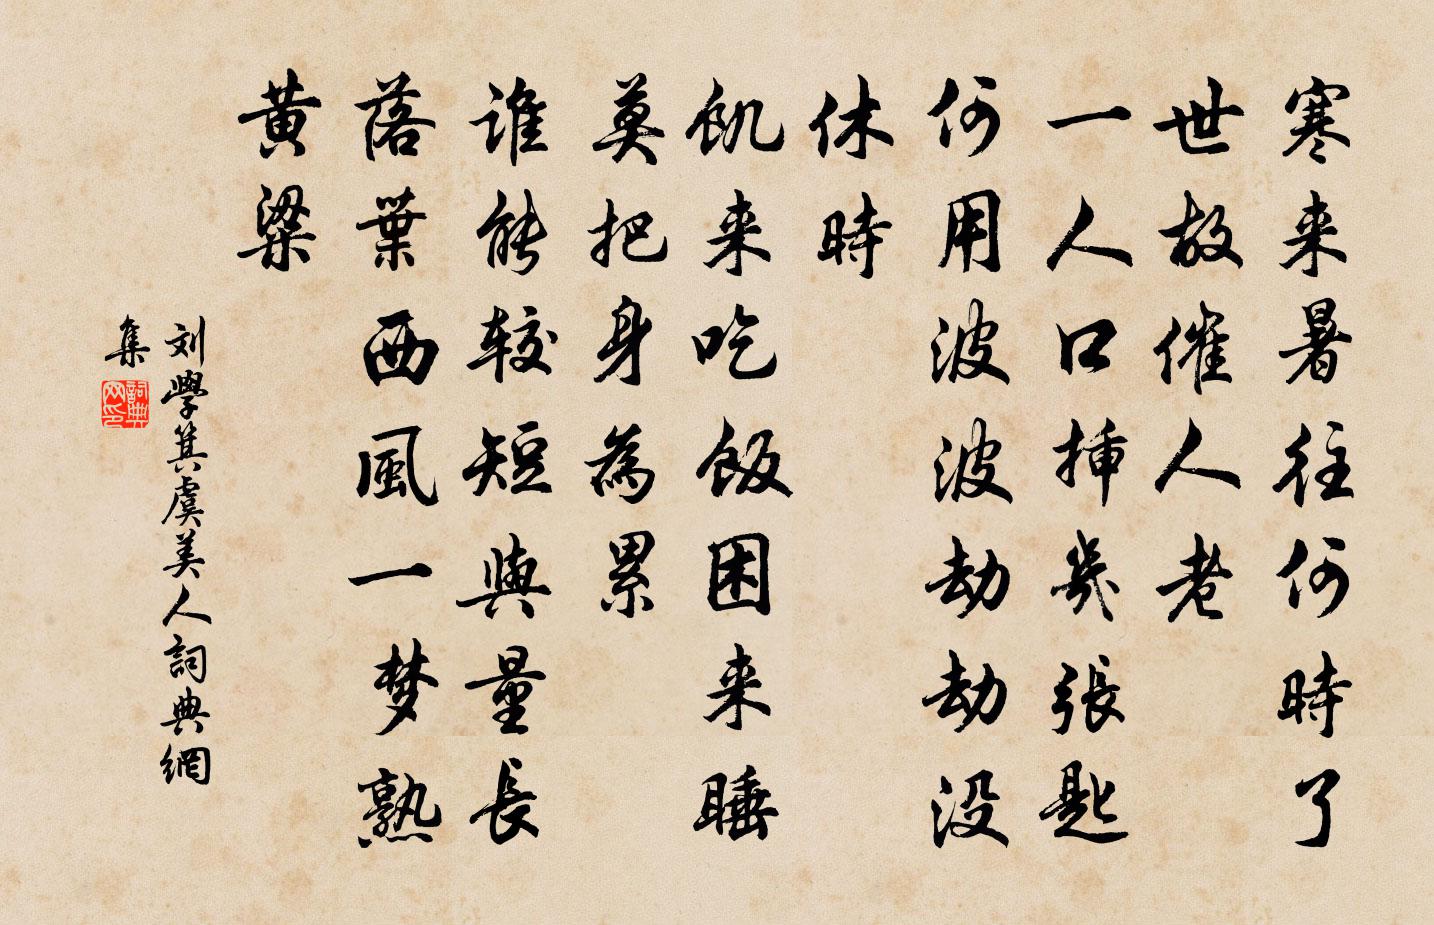 寒来暑往何時了
世故催人老
一人口挿幾張匙
何用波波劫劫没
休時
飢来吃飯困来睡
莫把身為累
谁能較短與量長
落葉西風一梦熟
黄粱
刘學箕虞美人詞典網
集
詞典網印